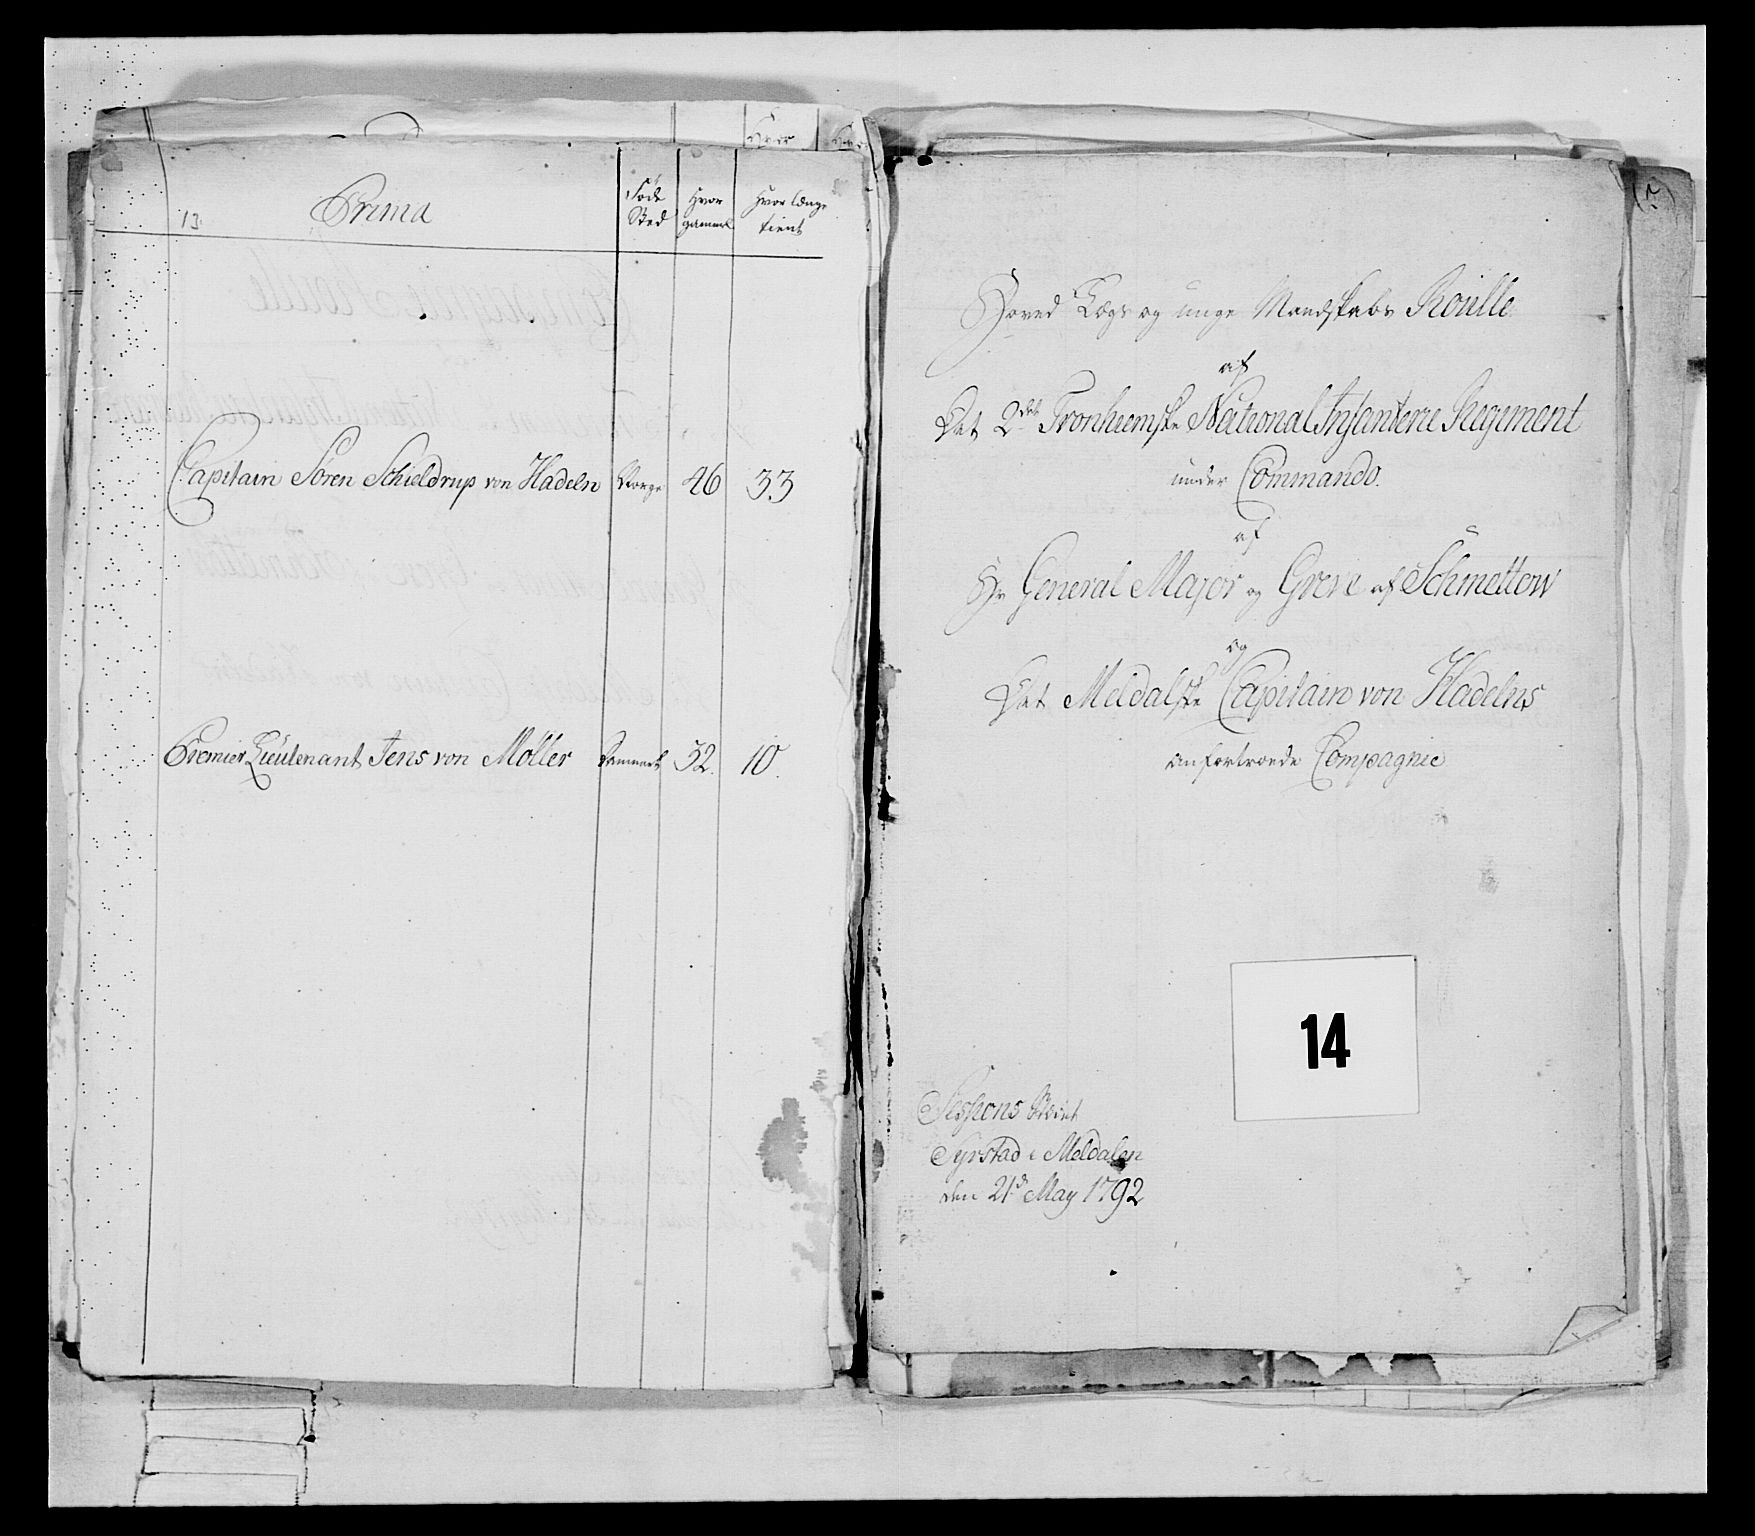 13.
Prima
Føde
Sted
Hvor
gammel
Hvor længe
tient
Capitain Søren Schieldrup von Hadeln Norge 46 33
Premier Lieutenant Jens von Møller Danmark 32. 10.
Hoved Lægs og unge Mandskabs Roulle
af
Det 2det Tronhiemske National Infanterie Regiment
under Commando.
af
Hr General Major og Greve af Schmettow
og
Det Meldalske Capitain von Hadelns
anfortroede Compagnie
14
Sessions Qvart
Syrstad i Meldalen
den 21d May 1792